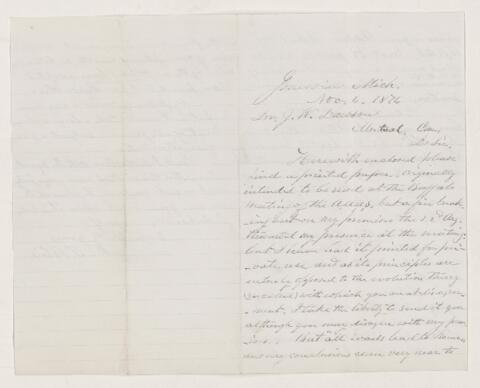 Jonesville Mich.
Nov. 4. 1876
Dr. J. W. Dawson
Montreal, Can.
Dr Sir.
Herewith enclosed please
find a printed paper, originally
intended to be read at the Buffalo
meeting of the A.A.A.S, but a fire break
ing out on my premises the 22d Aug.
prevented my presence at the meeting
but I have had it printed for pri-
vate use and as its principles are
entirely opposed to the evolution theory
with which you are at disagree-
ment, I take the liberty to send it you
although you may disagree with my
But "all roads lead to Rome"
and my conclusions come very near to